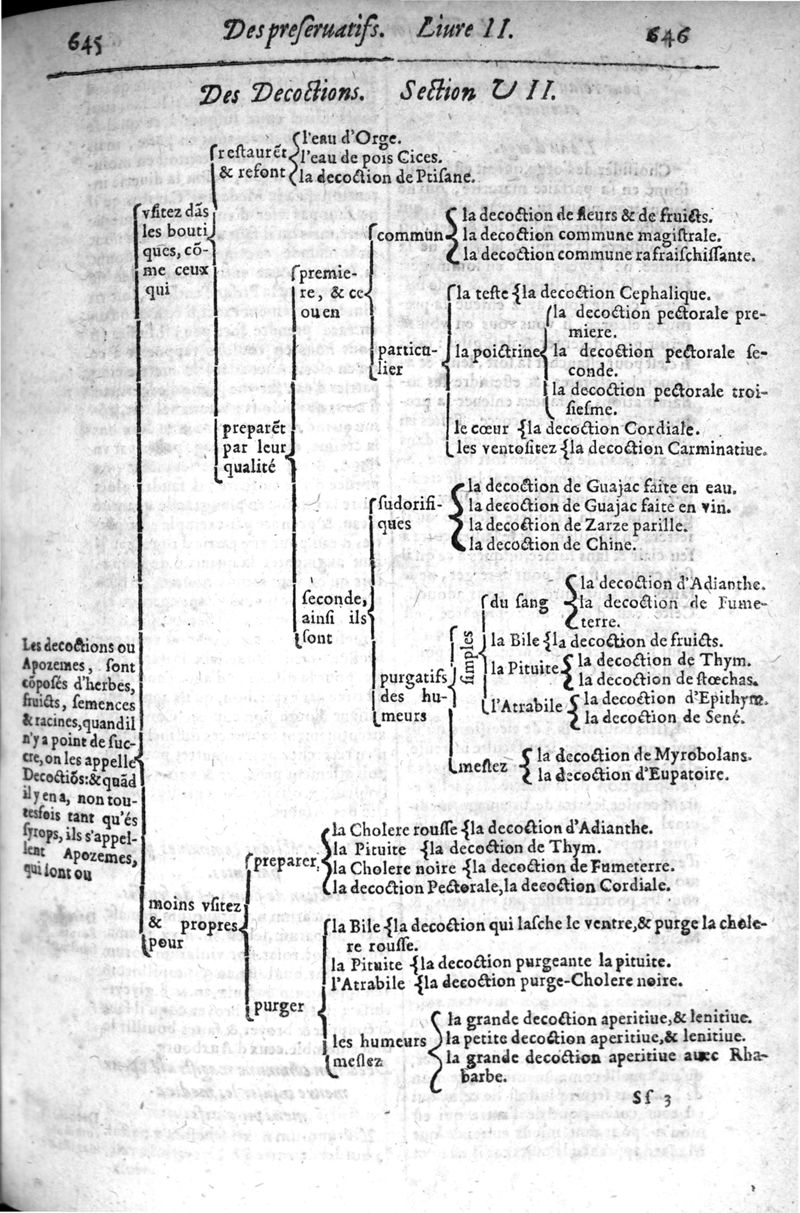 645
Des preseruatifs. Liure II.
646
Des Decoctions. Section VII.
Les decoctions ou
Apozemes, sont
cõposés d'herbes,
fruicts, semences
& racines, quand il
n'y a point de suc-
cre, on les appelle
Decoctiõs: & quãd
il y en a, non tou-
tesfois tant qu'és
syrops, ils s'appel-
lent Apozemes,
qui sont ou
vsitez dãs
les bouti
ques, cõ-
me ceux
qui
restaurẽt
& refont
l'eau d'Orge.
l'eau de pois Cices.
la decoction de Ptisane.
preparẽt
par leur
qualité
premie-
re, & ce
ou en
commun
la decoction de fleurs & de fruicts.
la decoction commune magistrale.
la decoction commune rafraischissante.
particu-
lier
la teste {la decoction Cephalique.
la poictrine
la decoction pectorale pre-
miere.
la decoction pectorale se-
conde.
la decoction pectorale troi-
siesme.
le cœur {la decoction Cordiale.
les ventositez {la decoction Carminatiue.
seconde,
ainsi ils
sont
sudorifi-
ques
la decoction de Guajac faite en eau.
la decoction de Guajac faite en vin.
la decoction de Zarze parille.
la decoction de Chine.
purgatifs
des hu-
meurs
simples
du sang
la decoction d'Adianthe.
la decoction de Fume-
terre.
la Bile {la decoction de fruicts.
la Pituite
la decoction de Thym.
la decoction de stœchas.
l'Atrabile
la decoction d'Epithym.
la decoction de Sené.
meslez
la decoction de Myrobolans.
la decoction d'Eupatoire.
moins vsitez
& propres
pour
preparer
la Cholere rousse {la decoction d'Adianthe.
la Pituite {la decoction de Thym.
la Cholere noire {la decoction de Fumeterre.
la decoction Pectorale, la decoction Cordiale.
purger
la Bile {la decoction qui lasche le ventre, & purge la chole-
re rousse.
la Pituite {la decoction purgeante la pituite.
l'Atrabile {la decoction purge-Cholere noire.
les humeurs
meslez
la grande decoction aperitiue, & lenitiue.
la petite decoction aperitiue, & lenitiue.
la grande decoction aperitiue auec Rha-
barbe.
Sf 3